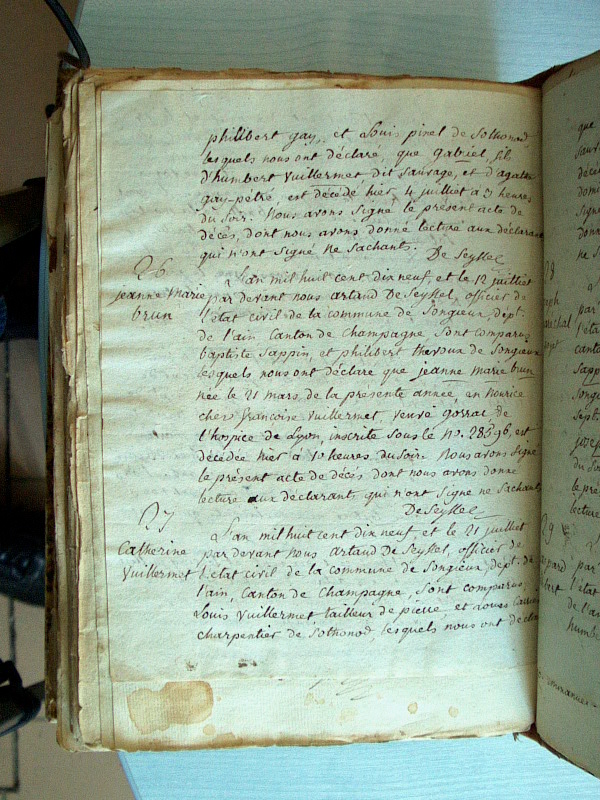 philibert gay, et Louis pinel de Sothonod
lesquels nous ont déclaré, que gabriel, fils
d'humbert Vuillermet dit Sauvage, et d'agathe
gay-petré, est décédé hier 4 juilliet à 3 heures
du Soir. Nous avons Signé le présent acte de
décés, dont nous avons donné lecture aux déclarans
qui n'ont Signé ne Sachants. De Seyssel
26
jeanne marie
brun
L'an mil huit cent dix neuf, et le 12 juilliet
par devant nous artaud De Seyssel, officier de
l'état civil de la commune de Songieux, dépt.
de l'ain Canton de Champagne Sont comparus
baptiste Sappin, et philibert thevoux de Songieux
lesquels nous ont déclaré que jeanne marie brun
née le 21 mars de la présente année, en nourice
chez francoise Vuillermet, veuve gorrat de
l'hospice de Lyon, inscrite Sous le No. 28396, est
décédée hier à 10 heures du Soir. Nous avons Signé
le présent acte de décés dont nous avons donné
lecture aux déclarant, qui n'ont Signé ne Sachant
De Seyssel
27
Catherine
Vuillermet
L'an mil huit cent dix neuf, et le 21 juilliet
par devant nous artaud De Seyssel, officier de
l'état civil de la commune de Songieux, dept. de
l'ain, Canton de Champagne, Sont comparus
Louis Vuillermet tailleur de pierre et
charpentier de Sothonod lesquels nous ont déclaré
28
29